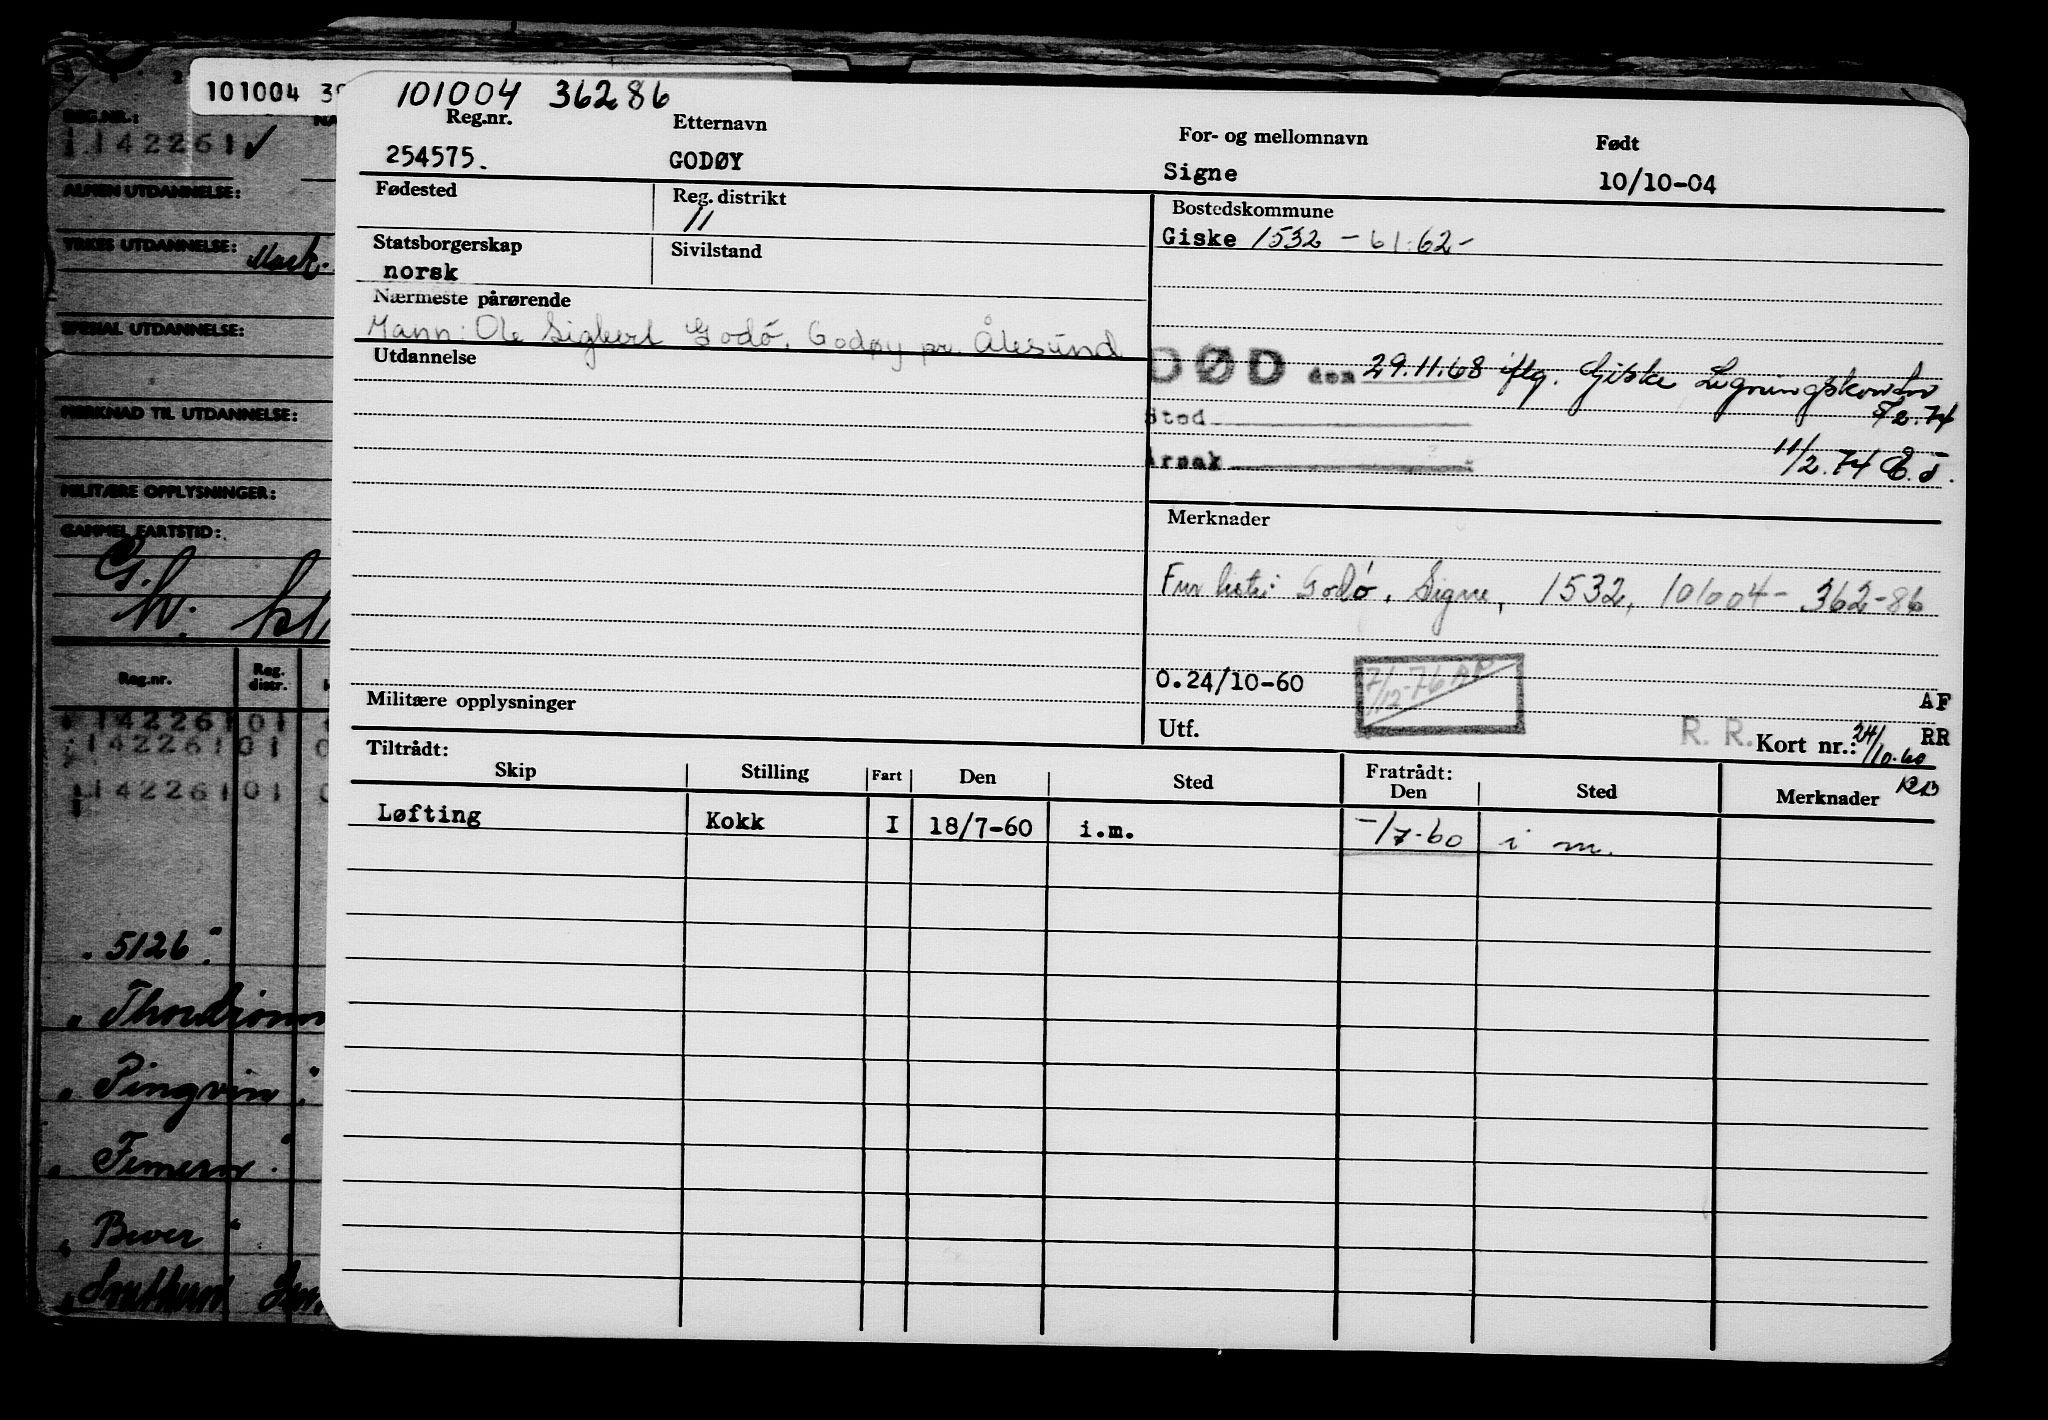 101004 3
REG.NR.:
1142261 ✓
ALMEN UTDANNELSE:
YRKES UTDANNELSE: Mask.
SPESIAL UTDANNELSE:
MERKNAD TIL UTDANNELSE:
MILITÆRE OPPLYSNINGER:
GAMMEL FARTSTID:
Reg.nr. Reg. distr.
1142261 01
1142261 01
1142261 01
"5126"
"Pingvin"
"Femern"
"Bever"
101004 36286
Reg.nr. Etternavn For- og mellomnavn Født
254575. GODØY Signe 10/10-04
Fødested Reg. distrikt Bostedskommune
11 Giske 1532 - 61-62-
Statsborgerskap Sivilstand
norsk
Nærmeste pårørende
Mann: Ole Sigbert Godø, Godøy pr. Ålesund
Utdannelse
DØD den 29.11.68 iflg. Giske Ligningskontor
5/2.74
Sted
Årsak
11/2.74 E.J.
Merknader
Fnr liste: Godø, Signe, 1532, 101004-362-86
O.24/10-60 7/12-76 AF
Militære opplysninger Utf. R. R. Kort nr.: 24/10-60 RR
Tiltrådt: Fratrådt:
Skip Stilling Fart Den Sted Den Sted Merknader RB
Løfting Kokk I 18/7-60 i.m. -/7-60 i m.